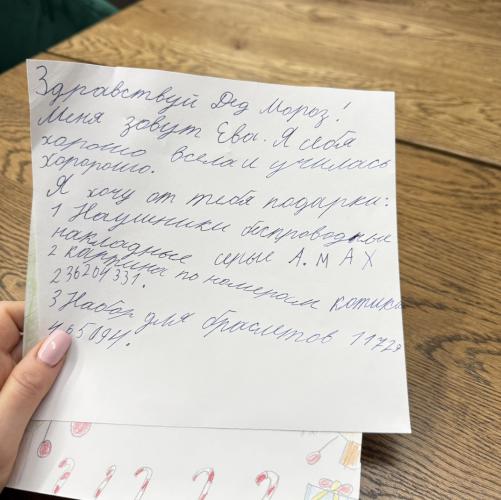 Здравствуй Дед Мороз!
Меня зовут Ева. Я себя
хорошо вела и училась
хоророшо.
Я хочу от тебя подарки:
1 Наушники беспроводные
накладные серые A.MAX
2 картина по номерам котики
236204331.
3 Набор для браслетов 11729
465094.